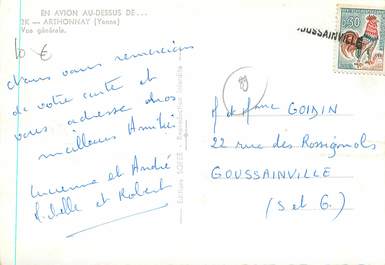 EN AVION AU-DESSUS DE...
2K — ARTHONNAY (Yonne)
Vue générale.
10 €
vous remercions
de votre carte et
vous adresse nos
meilleurs Amitiés
Lucienne et André
et Robert
89
0,50
GOUSSAINVILLE
M et Mme GOIDIN
22 rue des Rossignols
GOUSSAINVILLE
(S et O.)